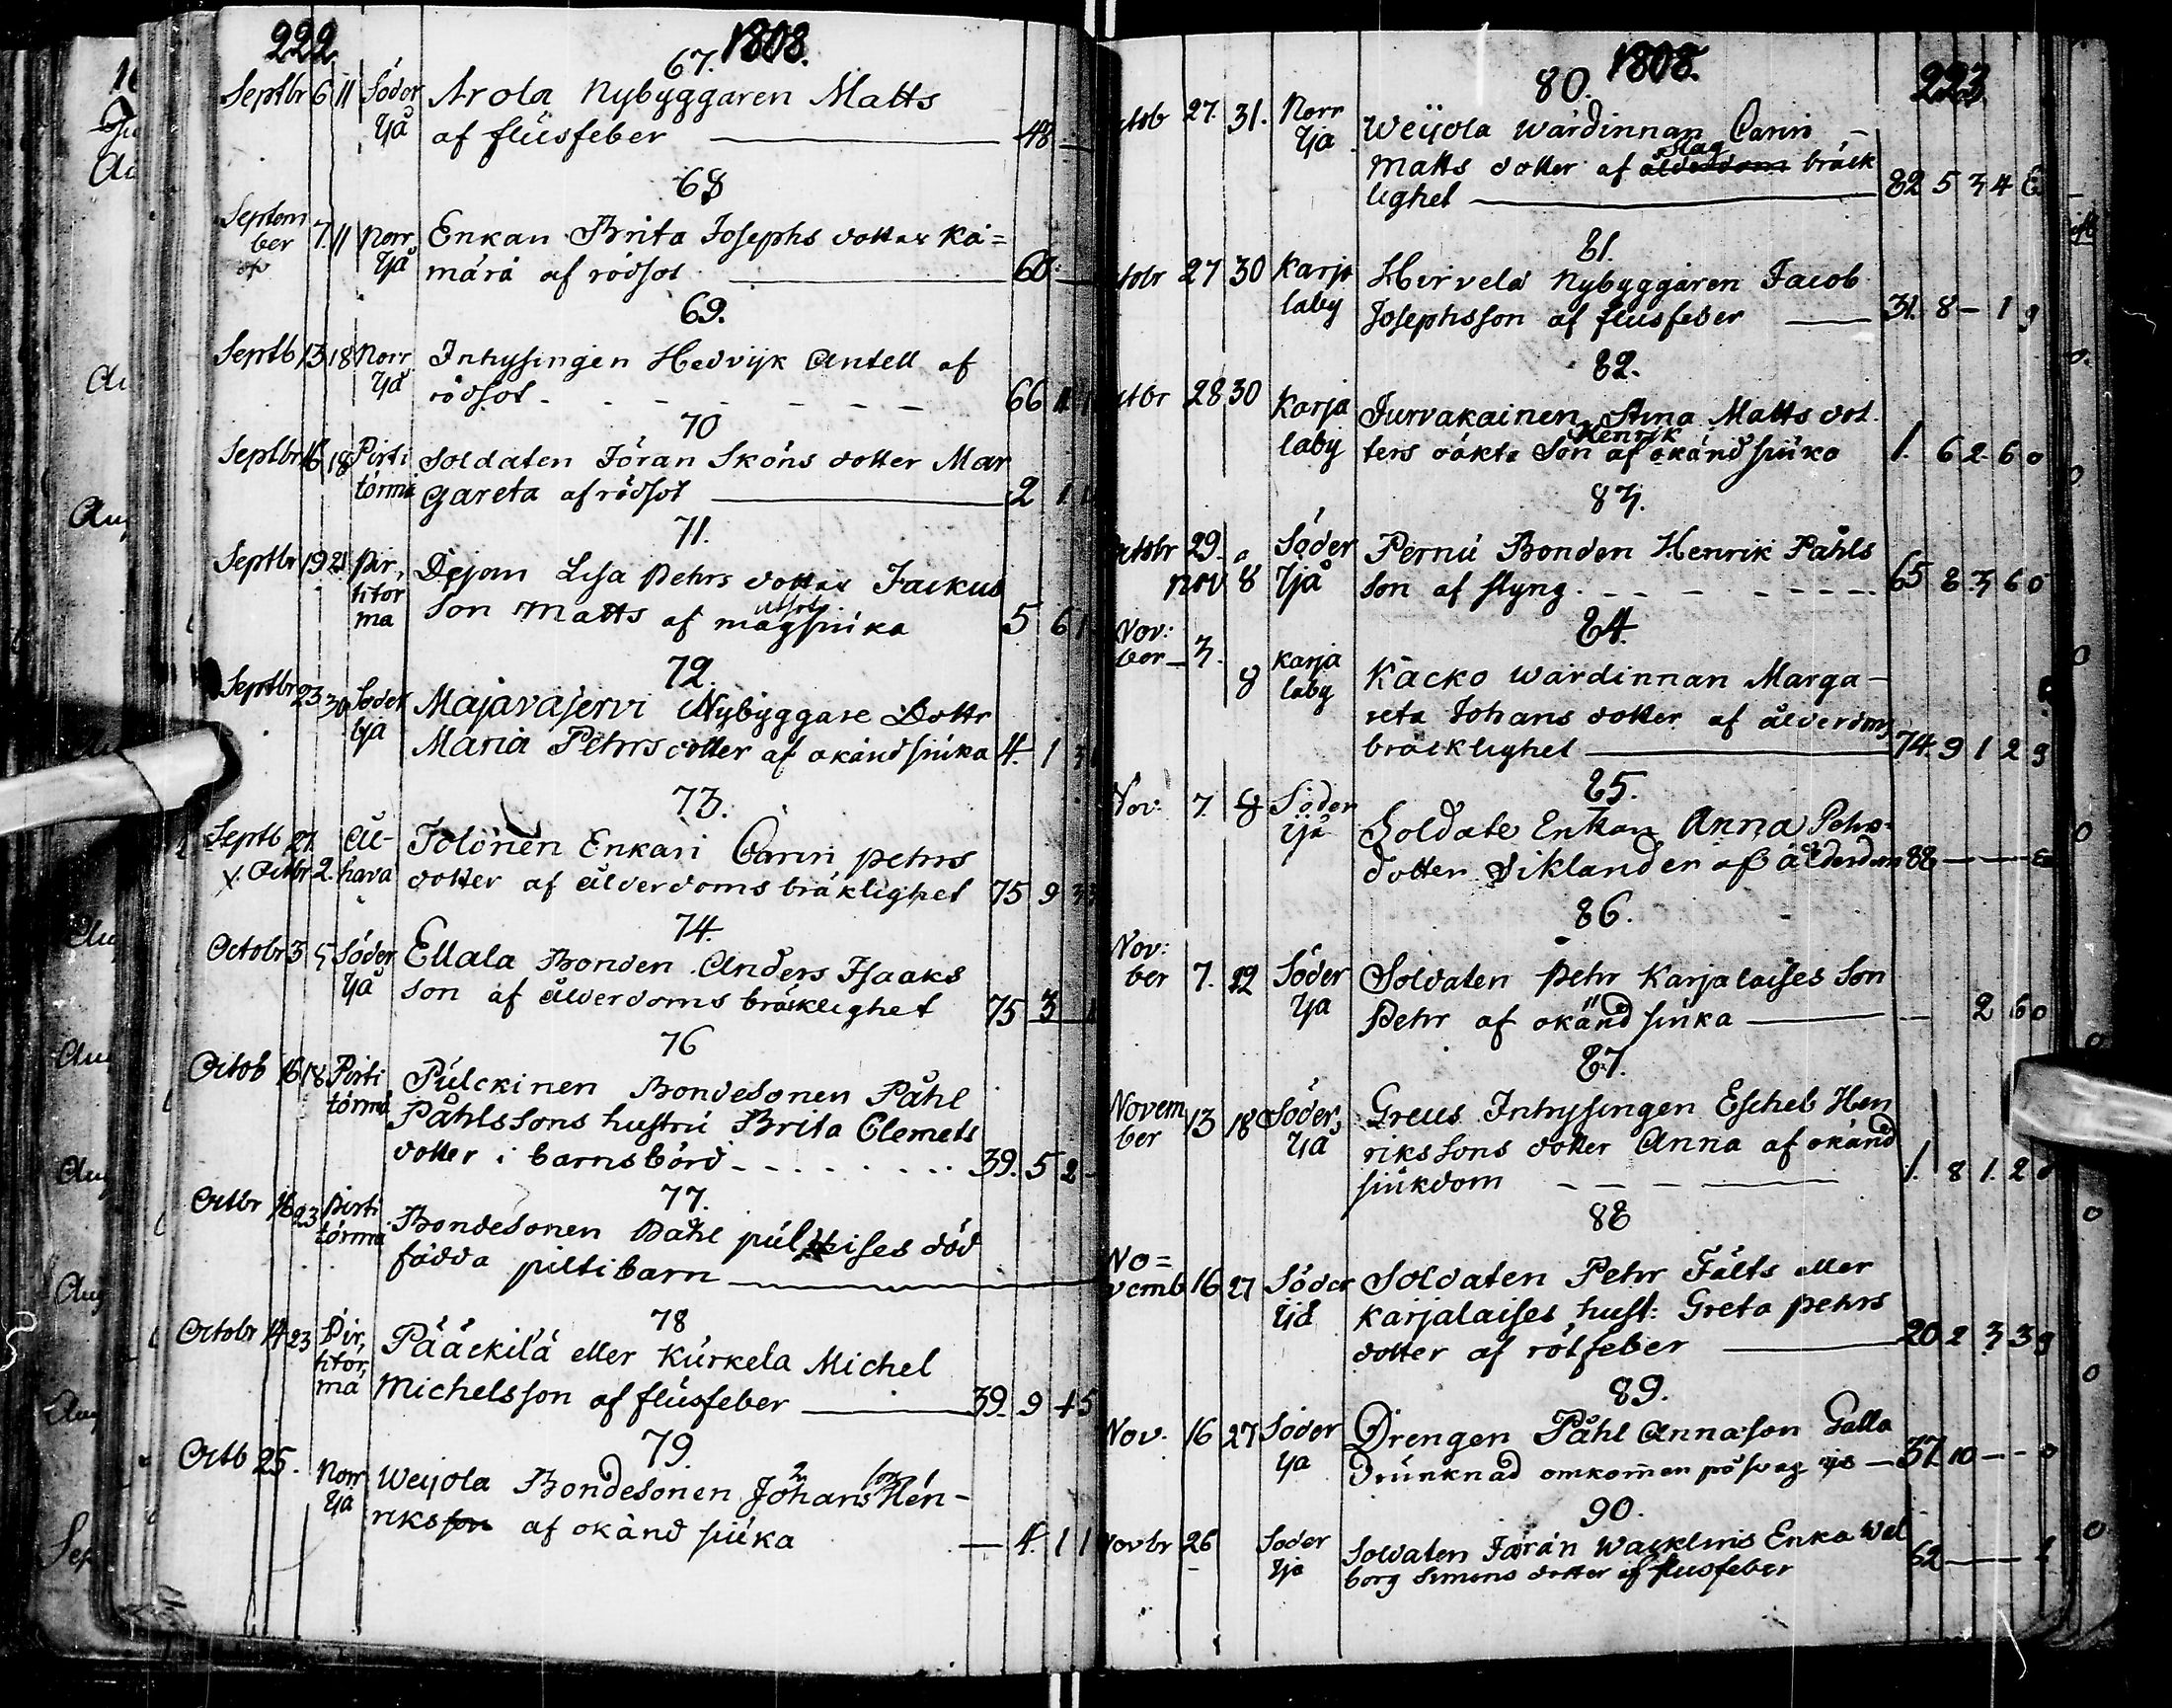 222
1808.
67.
Septbr 6 11 Söder Arola Nybyggaren Matts
Ijå af flusfeber — 48 —
68
Septem
ber 7. 11 Norr Enkan Brita Josephs dotter Kä=
Ijå märä af rödsot — 60. —
69.
Septb 13 18 Norr Inhysingen Hedvijk Antell af
Ijå rödsot - - - - - - 66 11
70
Septbr 16 18 Pirti Soldaten Jöran Sköns dotter Mar
törmä gareta af rödsot — 2 1
71.
Septbr 19 21 Pir,
titör
ma Dejom Lisa Pehrs dotter Jackus
son Matts af mag utsot siuka 5 6 1
72.
Septbr 23 30 Söder Majavajervi Nybyggare Dottr
Ijå Maria Pehrsdotter af okänd siuka 4. 1 3
73.
Septb 27. Au- Tolonen Enkan Carin Pehrs
Octbr 2. hava dotter af ålderdoms bräklighet 75 9 3
74.
Octobr 3 5 Söder Ellala Bonden Anders Isaaks
Ijå son af ålderdoms bräcklighet 75 3
76
Octob 16 18 Pirti Pulckinen Bondesonen Påhl
törmä Påhlssons hustru Brita Clemets
dotter i barnsbörd - - - - 39. 5 2 -
77.
Octbr 16 23 Pirti Bondesonen Påhl pulkises död
törmä födda piltibarn —
78
Octobr 14 23 Pir,
titor,
mä Pääckilä eller Kurkela Michel
Michelsson af flusfeber — 39. 9 4 5
79.
Octb 25. Norr Weijola Bondesonen Johans son Hen-
Ijå riksson af okänd siuka — 4. 1 1
1808.
223
80.
Octob 27. 31. Norr Weijola Wärdinnan Carin -
Ijå Matts dotter af Slag ålderdom bräck
lighet — 82 5 3 4 6
81.
27 30 Karja Hirvelä Nybyggaren Jacob
laby Josephsson af flusfeber — 31. 8 - 1 9
82.
28 30 Karja Jurvakainen Stina Matts dot
laby ters oäkta Son Henrik af okänd siuka 1. 6 2 6 0
83.
Octobr 29. Söder Pernu Bonden Henrik Påhls
Nov 8 Ijå son af styng - - - - - 65 8 3 6 0
84.
Nov:
ber 3. 8 Karja Käcko wärdinnan Marga-
laby reta Johans dotter af ålderdoms
bräcklighet — 74. 9 1 2 9
85.
Nov: 7. 8 Söder
Ijå Soldate Enkan Anna Pehrs-
dotter Siklander af ålderdom 88 —
86.
Nov:
ber 7. 22 Söder Soldaten Pehr Karjalaises Son
Ijå Pehr af okänd siuka — 2 6 0
87.
Novem
ber 13 18 Söder, Greus Inhysingen Eschel Hen
Ijå rikssons dotter Anna af okänd
siukdom — — — 1. 8 1. 2
88
No=
vemb 16 27 Söder Soldaten Pehr Fälts eller
Ijå Karjalaises hust: Greta Pehrs
dotter af rötfeber — 20 2 3 3 9
89.
Nov. 16 27 Söder Drengen Påhl Annason Galla
Ija Drunknad omkommen på svag ijs — 37. 10 - - 0
90.
Novbr 26 Söder Soldaten Jöran Wacklins Enka Wal
Ija borg Simons dotter af flusfeber 62 —